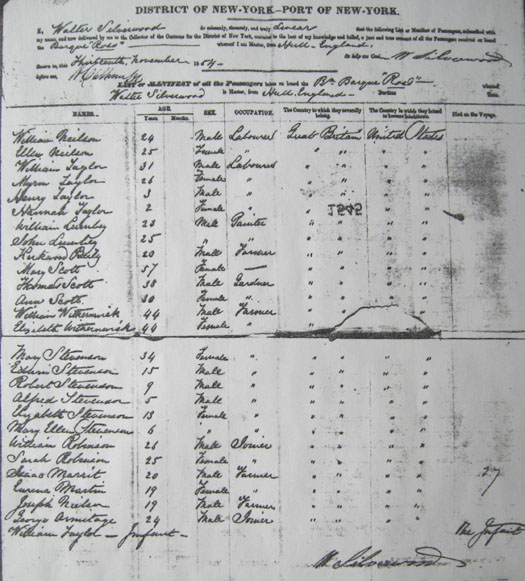 DISTRICT OF NEW-YORK—PORT OF NEW-YORK.
I, Walter Silverwood do solemnly, sincerely, and truly Swear that the following List or Manifest of Passengers, subscribed with
my name, and now delivered by me to the Collector of the Customs for the District of New York, contains, to the best of my knowledge and belief, a just and true account of all the Passengers received on board
the Barque "Ross" whereof I am Master, from Hull - England.
Sworn to, this Thirteenth November 1854 So help me God. W Silverwood
before me,
LIST or MANIFEST of all the Passengers taken on board the Br Barque "Ross" whereof
Walter Silverwood is Master, from Hull, England— Burthen Tons.
NAMES. AGE. Years Months. SEX. OCCUPATION. The Country to which they severally belong. The Country in which they intend to become inhabitants. Died on the Voyage.
William Neilson 24 Male Labourer Great Britain United States
Ellen Neilson 25 Female " " " " "
William Taylor 31 Male Labourer " " " "
Taylor 26 Female " " " " "
Henry Taylor 3 Male " " " " "
Hannah Taylor 2 Female " " " " "
William Lumley 23 Male Painter " " " "
John Lumley 25 " " " " " "
Kirkwood 20 Male Farmer " " " "
Mary Scott 57 Female — " " " "
Thomas Scott 38 Male Gardner " " " "
Ann Scott 30 Female " " " " "
William Witherwick 44 Male Farmer " " " "
Elizabeth Witherwick 44 Female " " " " "
Mary Stevenson 34 Female " " " " "
Edwin Stevenson 15 Male " " " " "
Robert Stevenson 9 Male " " " " "
Alfred Stevenson 5 Male " " " " "
Elizabeth Stevenson 13 Female " " " " "
Mary Ellen Stevenson 6 " " " " " "
William Robinson 26 Male Joiner " " " "
Sarah Robinson 25 Female " " " " "
Isaac 20 Male Farmer " " " " 27
Martin 19 Female " " " " "
Joseph Neilson 19 Male Farmer " " " "
George Armitage 24 Male Joiner " " " "
William Taylor — Infant — the Infant
W Silverwood